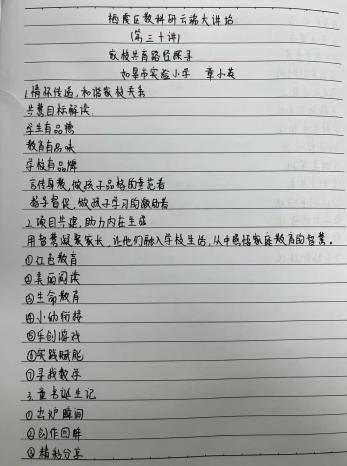 栖霞区教科研云端大讲坛
(第三十讲)
家校共育路径探寻
如皋市实验小学 章小英
1.情怀传递,和谐家校关系
共慧目标解读
学生有品德
教育有品味
学校有品牌
言传身教,做孩子品格的示范者
指导督促,做孩子学习的激励者
2.项目共建,助力内在生成
用智慧凝聚家长,让他们融入学校生活,从中感悟家庭教育的智慧。
①红色教育
②美丽阅读
③生命教育
④小幼衔接
⑤乐创游戏
⑥实践赋能
⑦寻找数学
3.童书诞生记
①出炉瞬间
②创作回眸
③精彩分享